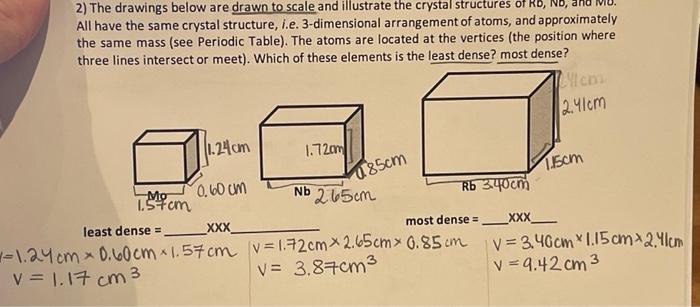 2) The drawings below are drawn to scale and illustrate the crystal structures of Rb, Nb, and Mo.
All have the same crystal structure, i.e. 3-dimensional arrangement of atoms, and approximately
the same mass (see Periodic Table). The atoms are located at the vertices (the position where
three lines intersect or meet). Which of these elements is the least dense? most dense?
2.41cm
2.41cm
1.24cm
1.72cm
0.85cm
1.15cm
Mo
0.60cm
Nb
2.65cm
Rb
3.40cm
1.57cm
least dense = _____XXX__________
most dense = ___XXX___
V=1.24cm × 0.60cm × 1.57cm
V=1.72cm × 2.65cm × 0.85cm
V=3.40cm × 1.15cm × 2.41cm
V = 1.17 cm³
V= 3.87cm³
V = 9.42 cm³